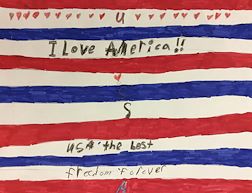 U
I Love America!!
S
USA the best
freedom Forever
A